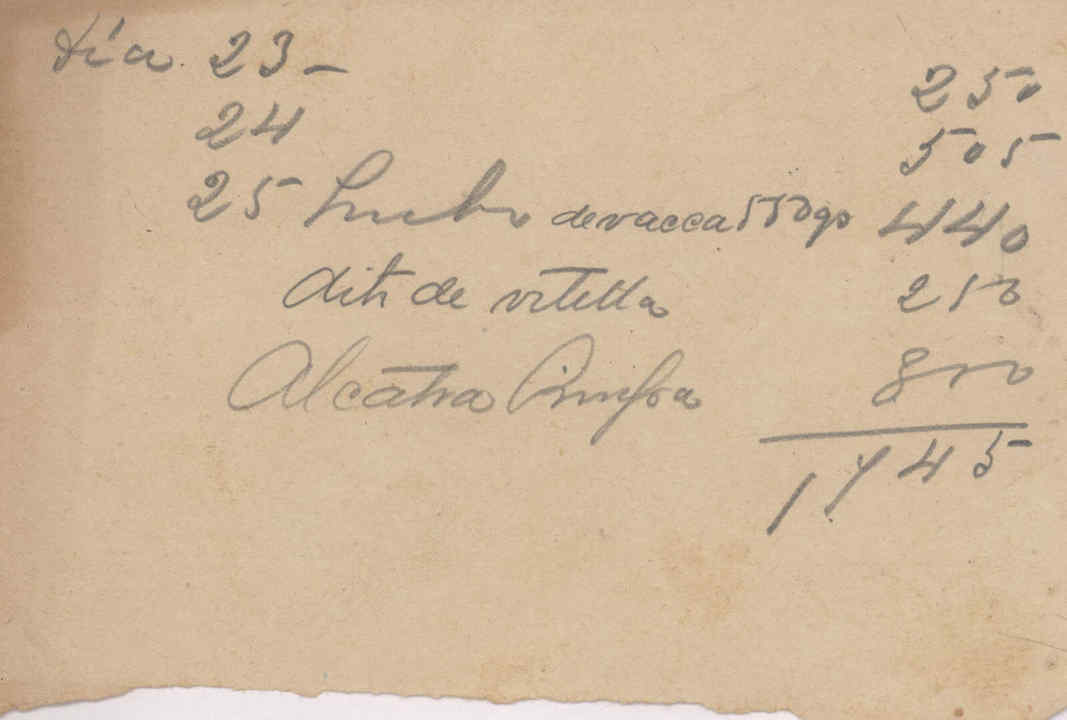 Dia 23 - 250
24 505
25 Lombo de vacca 550 gr 440
dito de vitella 250
Alcatra limpa 300
1745